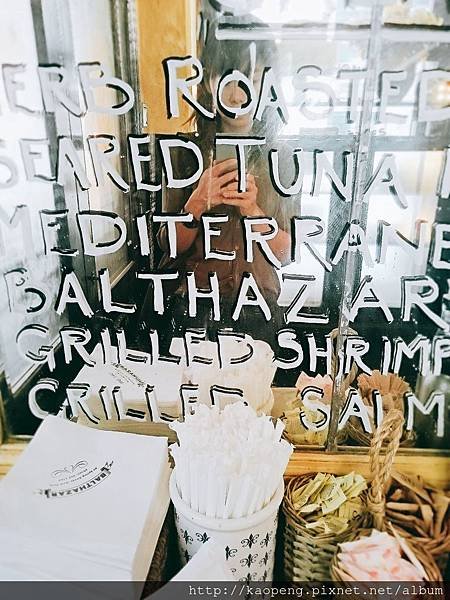 HERB ROASTED
SEARED TUNA
MEDITERRANE
BALTHAZAR
GRILLED SHRIMP
GRILLED SALM
BALTHAZAR
http://kaopeng.pixnet.net/album